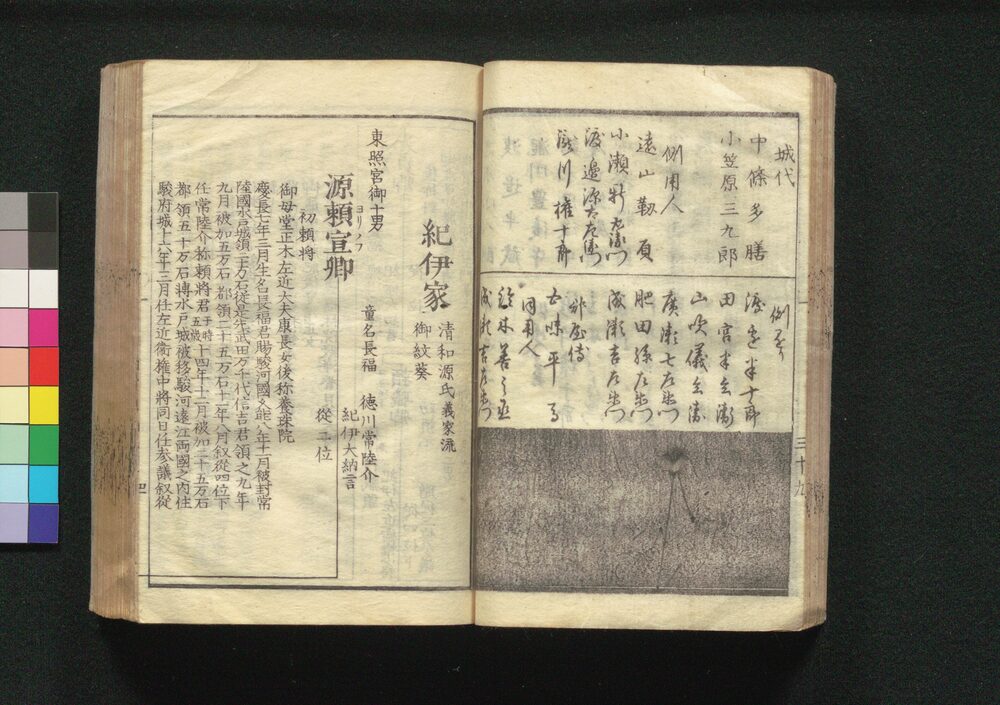 城代
中條多膳
小笠原三九郎
側用人
遠山靱負
小瀬新左衛門
渡邉源左衛門
瀧川権十郎
渡邉半十郎
田宮半兵衛
山吹儀兵衛
廣瀬七左衛門
肥田孫左衛門
成瀬吉左衛門
五味平馬
同用人
鈴木善之丞
成瀬吉左衛門
三十九
紀伊家
清和源氏義家流
御紋葵
東照宮御十男
源頼宣卿
ヨリノフ
初頼将
童名長福
徳川常陸介
紀伊大納言
從二位
御母堂正木左近大夫康長女後称養珠院
慶長七年三月生名長福君賜駿河國久能八年十一月被封常
陸國水戸城領二十万石從是先武田万千代信吉君領之九年
九月被加五万石都領二十五万石十一年八月叙從四位下
任常陸介称頼將君于時五歳十四年十二月被加二十五万石
都領五十万石轉水戸城被移駿河遠江両國之内住
駿府城十六年三月任左近衛権中將同日任参議叙從